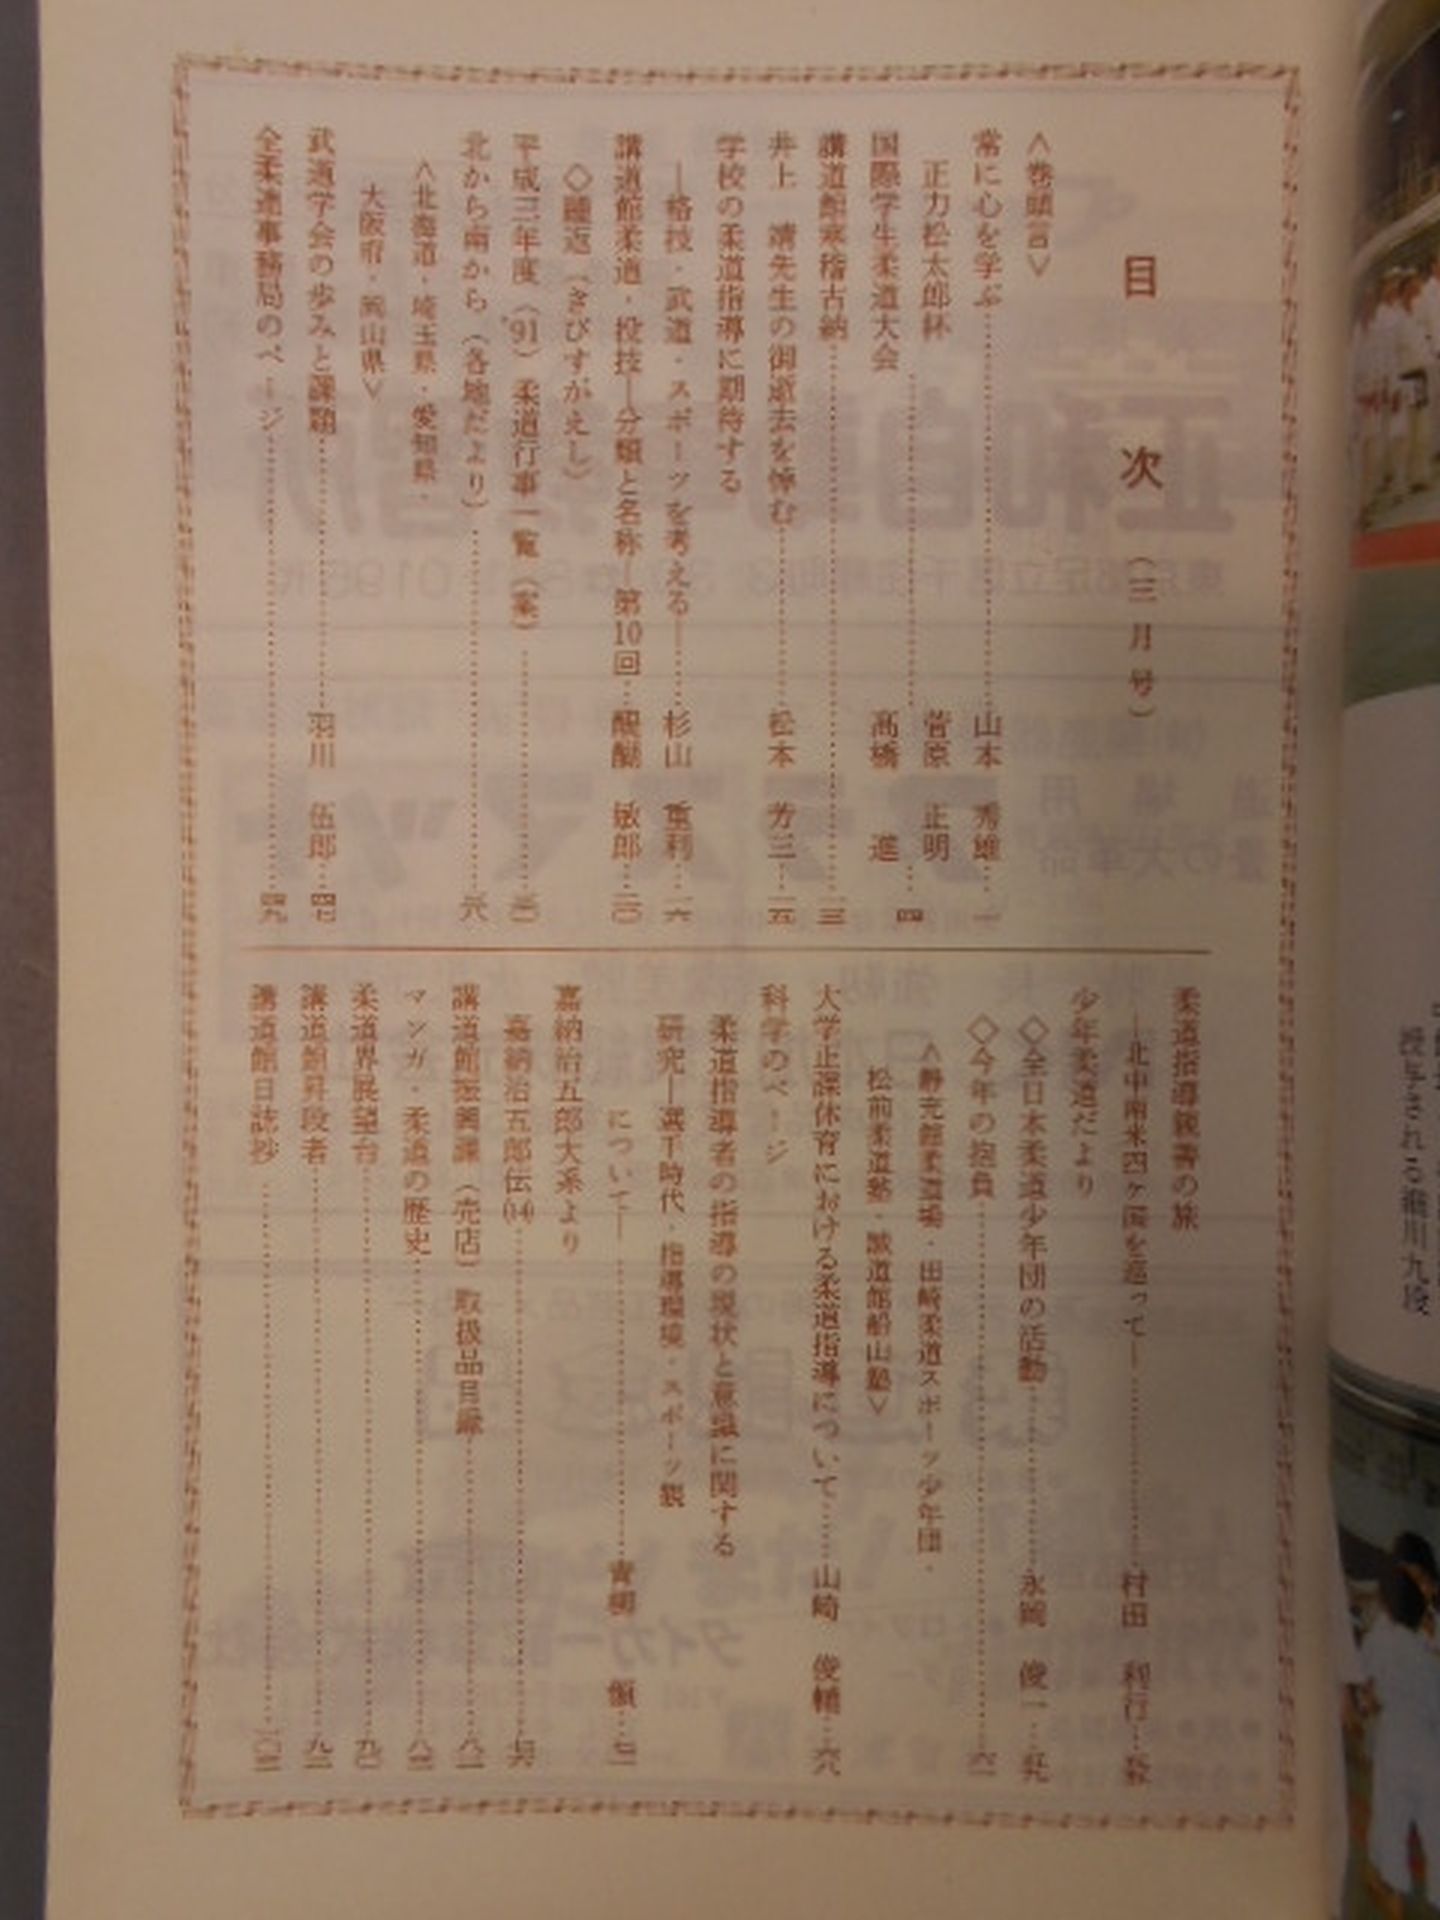 目次（三月号）
＜巻頭言＞
常に心を学ぶ……山本 秀雄…一
正力松太郎杯
国際学生柔道大会……菅原 正明 高橋 進…四
講道館寒稽古納……一三
井上 靖先生の御逝去を悼む……松本 芳三…一五
学校の柔道指導に期待する
―格技・武道・スポーツを考える―……杉山 重利…一六
講道館柔道・投技―分類と名称―第10回…醍醐 敏郎…二〇
◇踵返（きびすがえし）
平成三年度（'91）柔道行事一覧（案）……三〇
北から南から（各地だより）……三八
＜北海道・埼玉県・愛知県・
大阪府・岡山県＞
武道学会の歩みと課題……羽川 伍郎…四七
全柔連事務局のページ……四九
柔道指導親善の旅
―北中南米四ヶ国を巡って―……村田 利行…
少年柔道だより
◇全日本柔道少年団の活動……永岡 俊一…五九
◇今年の抱負……六一
＜静充館柔道場・田崎柔道スポーツ少年団・
松前柔道塾・誠道館船山塾＞
大学正課体育における柔道指導について……山崎 俊輔…六八
科学のページ
柔道指導者の指導の現状と意識に関する
研究―選手時代・指導環境・スポーツ観
について―……青柳 領…七二
嘉納治五郎大系より
嘉納治五郎伝(14)……七六
講道館振興課（売店）取扱品目録……八一
マンガ・柔道の歴史……八二
柔道界展望台……九〇
講道館昇段者……九二
講道館日誌抄……一〇三
授与される細川九段